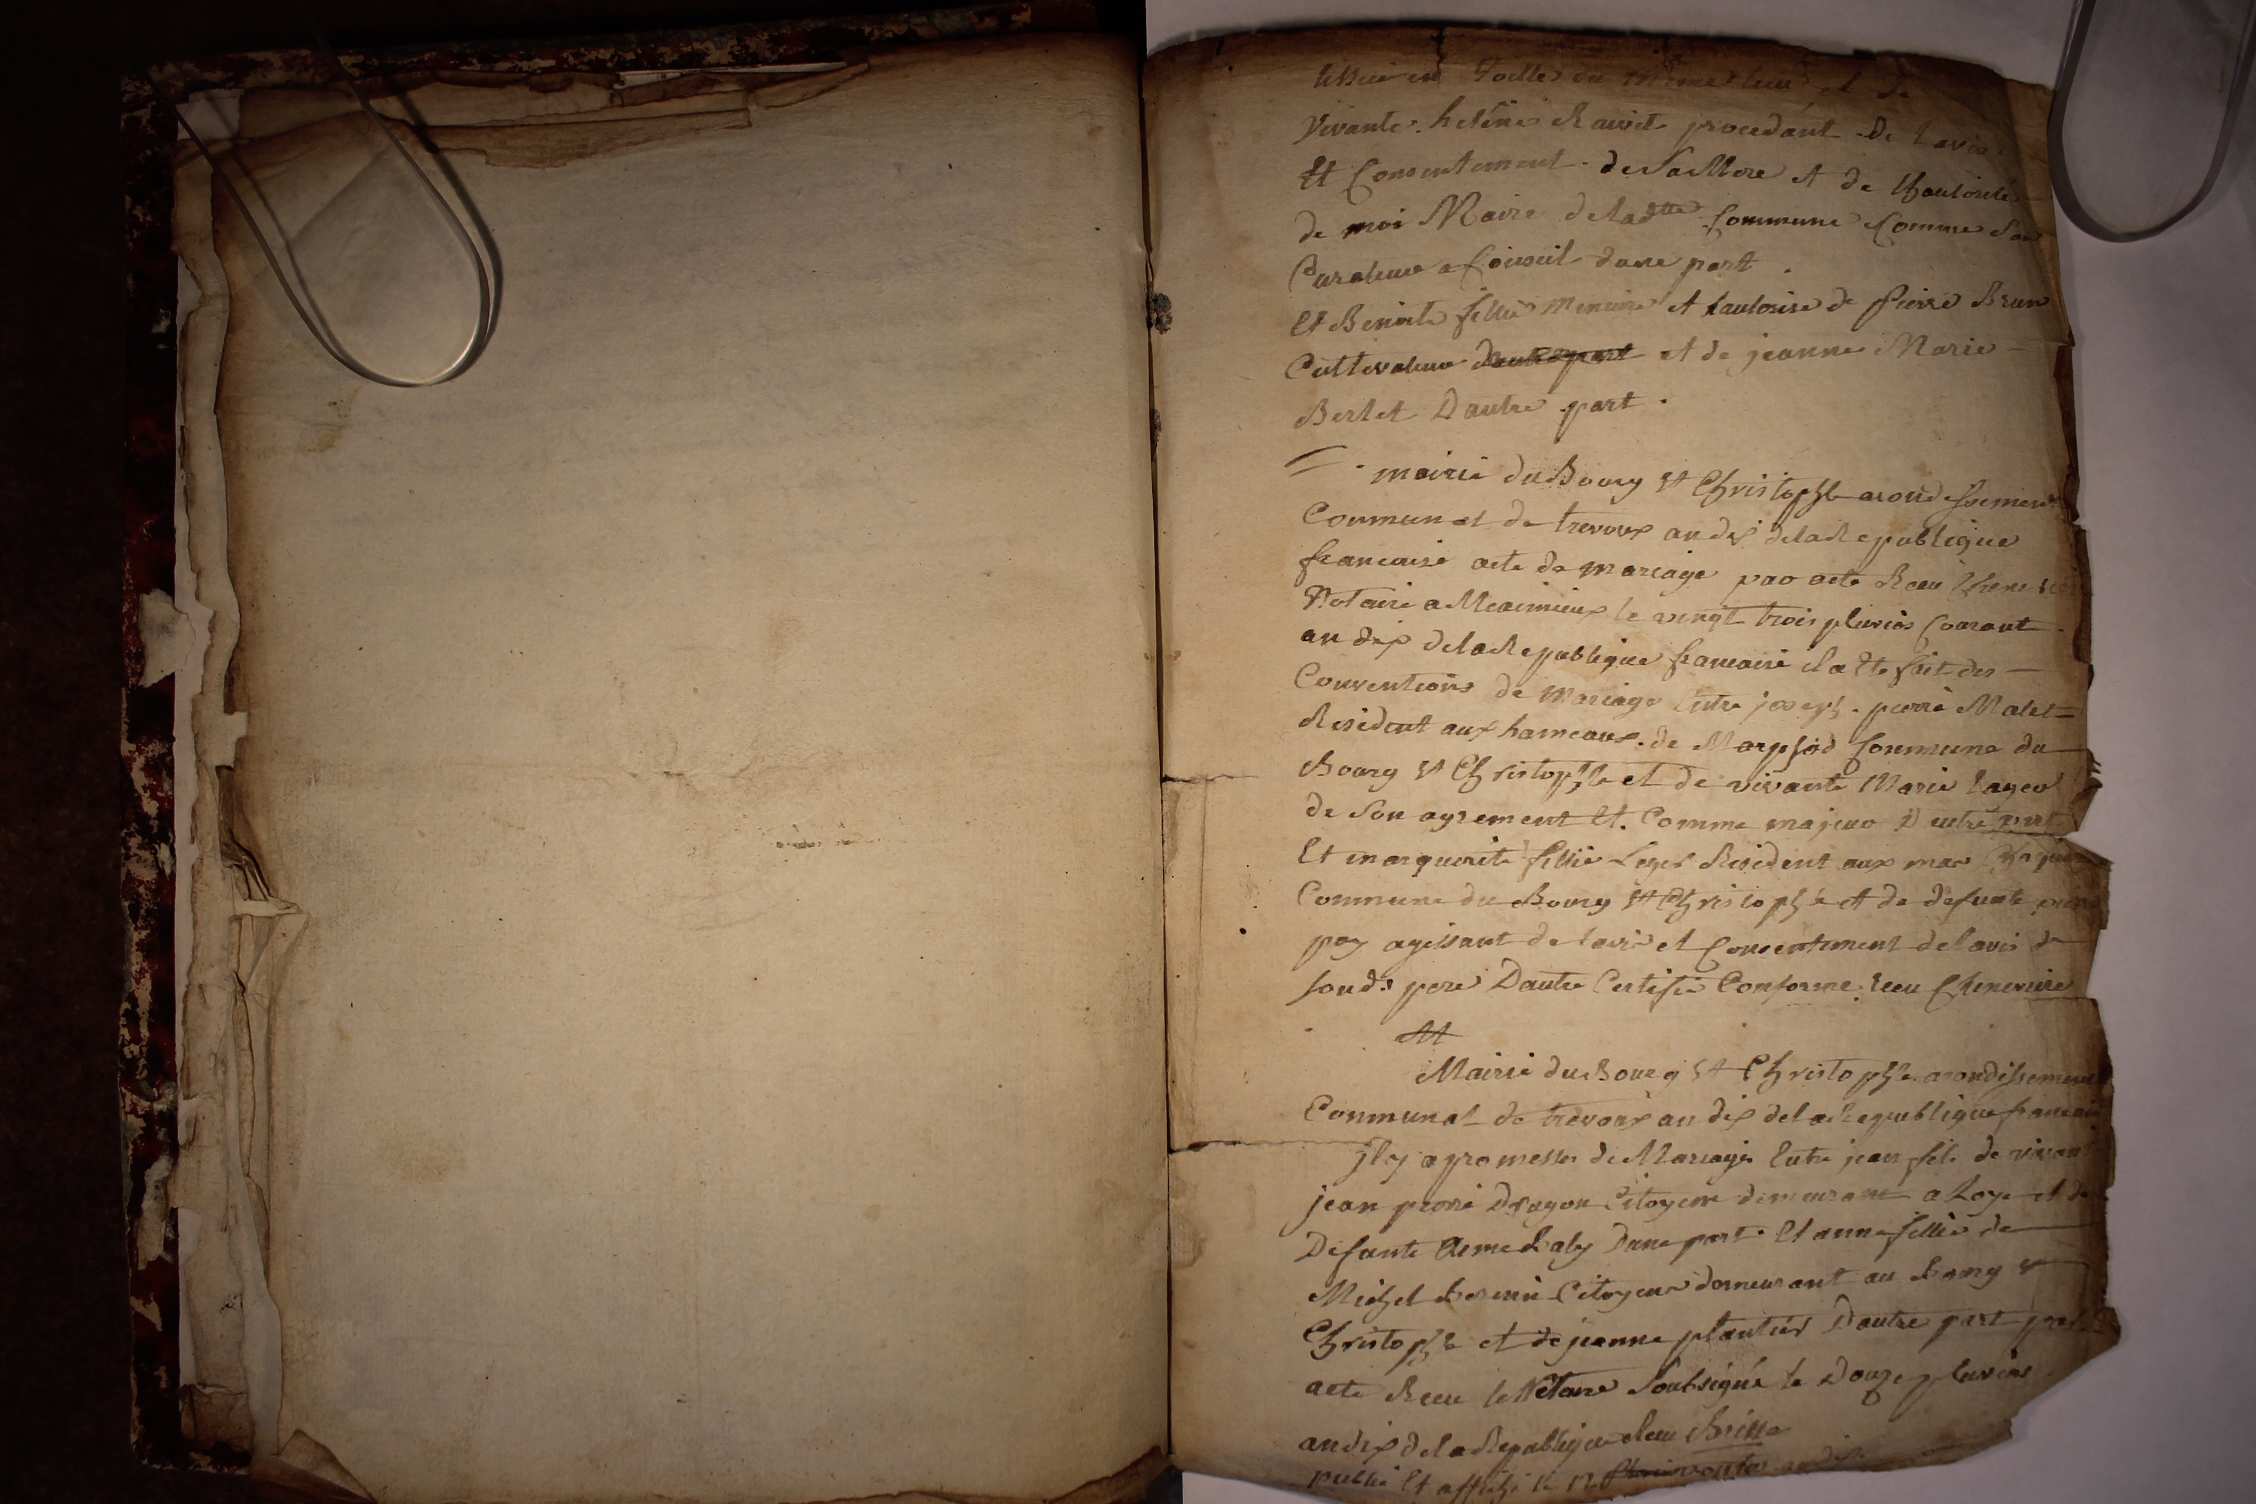 en Toille du même lieu et de
Vivante. helène Ravit procedant De Lavis
Et Consentement. de Sa Mere et de Lhautorité
de moi Maire de lad.tte Commune Comme Son
Curateur a Conseil dune part.
Et Benoite fillie Mineure et hautorise de pierre Brun
Cultevateur Dautre part et de jeanne Marie
Berlet Dautre part.
mairie du Bourg St Christophle arondissement
Communal de trevoux an dix de la Republique
francaise acte de mariage par acte Receu
Notaire a Meximieux le vingt trois pluvios Courant
an dix de la Republique francaise il a ete fait des
Conventions de Mariage Entre joseph. pierre Malet
Resident aux hameaux. de Marphod Commune du
Bourg St Christophle et de vivante Marie
de Son agrement Et. Comme majeur D'autre part
Et marguerite fillie Leger Resident aux mas
Commune du Bourg St Christophle et de defunte
pay agissant de lavis et Consentement de lavis de
sond.t pere Dautre Certifié Conforme. Receu Chenevrier
Mairie du Bourg St Christophle arondissement
Communal de trevoux an dix de la Republique francaise
jl y a promesse de Mariage Entre jean fils de vivant
jean pierre Dragon Citoyen demeurant a Loye et de
Defunte Raby Dune part. Et anne fillie de
Michel Citoyen demeurant au Bourg St
Christophle et de jeanne plantier Dautre part par
acte Receu le Notaire Soubsigné le Douze pluvios
an dix de la Republique Receu
publié Et affiché le 12 an dix